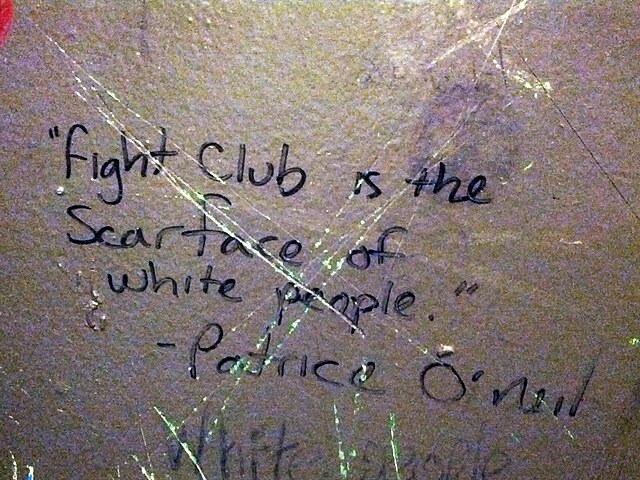 "Fight Club is the
Scarface of
white people."
-Patrice O'neil
White people